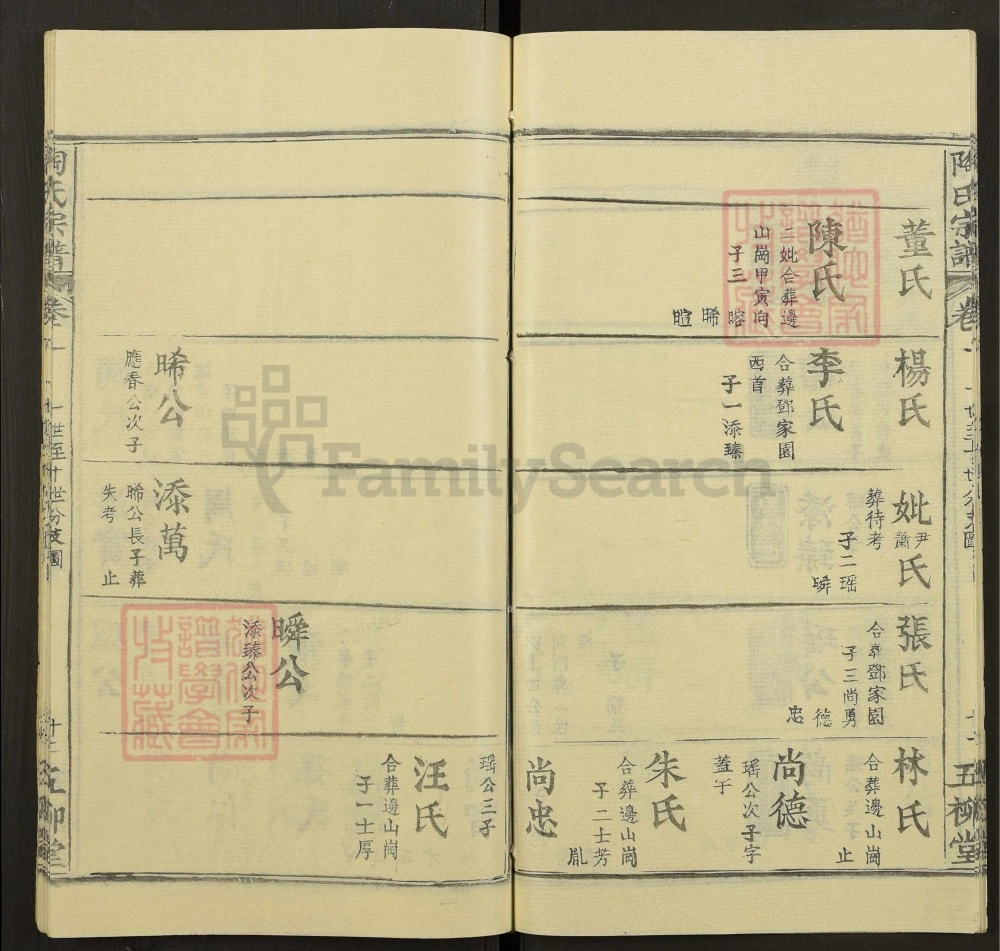 陶氏宗譜
卷一
一世至十世分支圖
十一
五柳堂
董氏
陳氏
二妣合葬邊
山崗甲寅向
子三
㬏
晞
暄
楊氏
李氏
合葬鄧家園
西首
子一添臻
妣尹蕭氏
葬待考
子二瑶
瞬
張氏
合葬鄧家園
子三尚勇
德
忠
林氏
合葬邊山崗
止
尚德
瑶公次子字
蓋于
朱氏
合葬邊山崗
子二士芳
胤
尚忠
晞公
應春公次子
添萬
晞公長子葬
失考 止
瞬公
添臻公次子
瑶公三子
汪氏
合葬邊山崗
子一士厚
陶氏宗譜
卷一
一世至十世分支圖
十二
五柳堂
FamilySearch